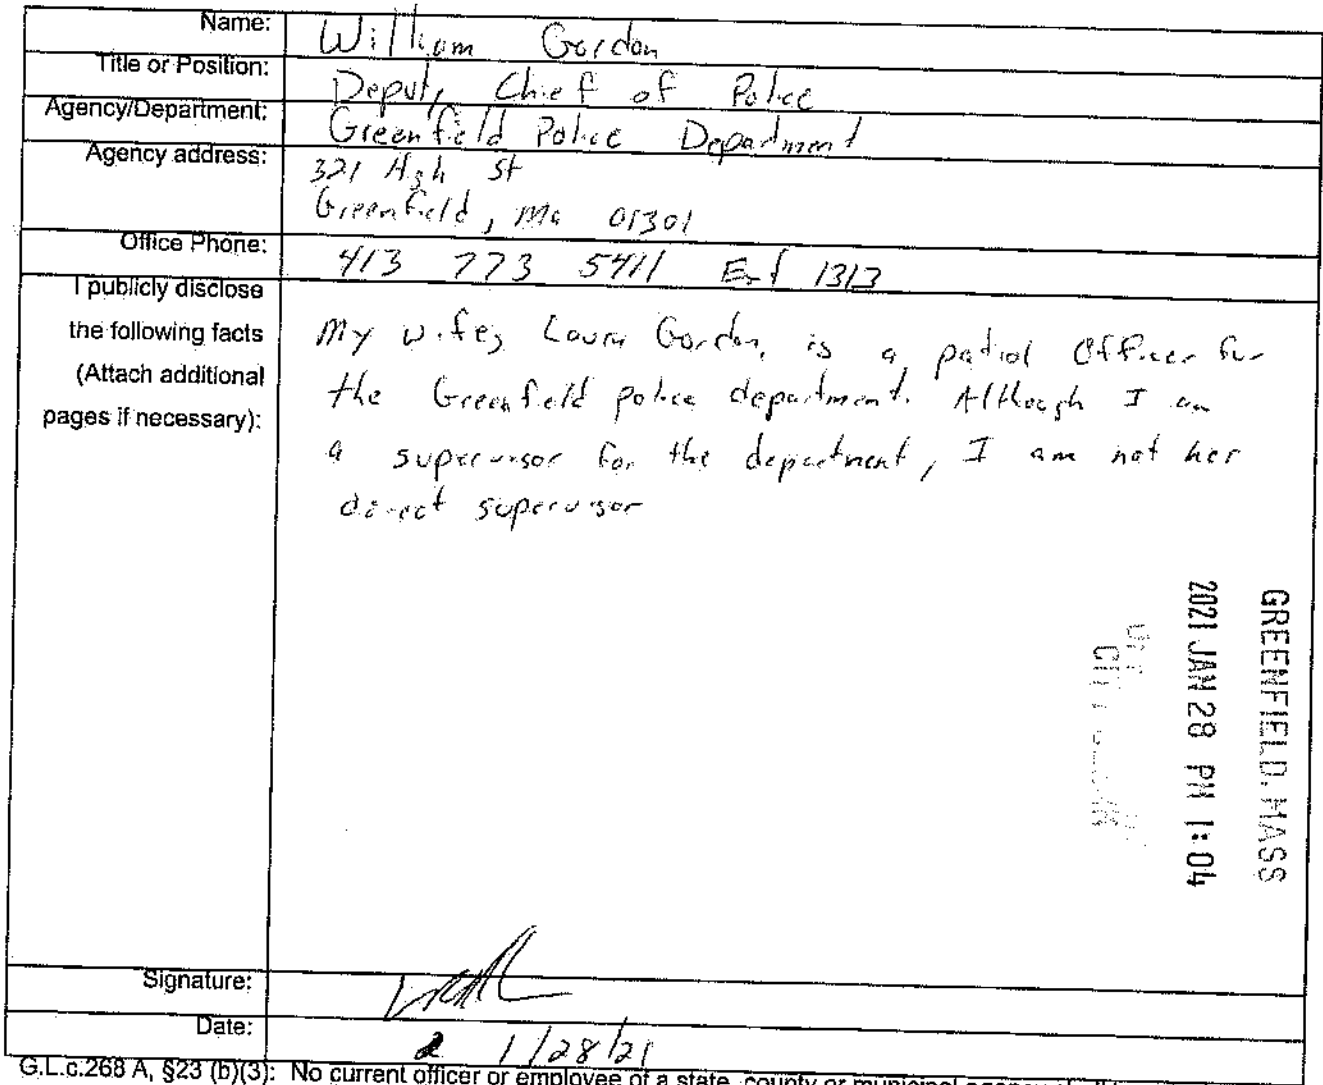 Name: William Gordon
Title or Position: Deputy Chief of Police
Agency/Department: Greenfield Police Department
Agency address: 321 High St
Greenfield, Ma 01301
Office Phone: 413 773 5411 Ext 1313
I publicly disclose
the following facts
(Attach additional
pages if necessary):
My wife, Laura Gordon, is a patrol Officer for
the Greenfield police department. Although I am
a supervisor for the department, I am not her
direct supervisor
GREENFIELD, MASS
2021 JAN 28 PM 1:04
Signature:
Date: 1/28/21
G.L.c.268 A, §23 (b)(3): No current officer or employee of a state, county or municipal agency